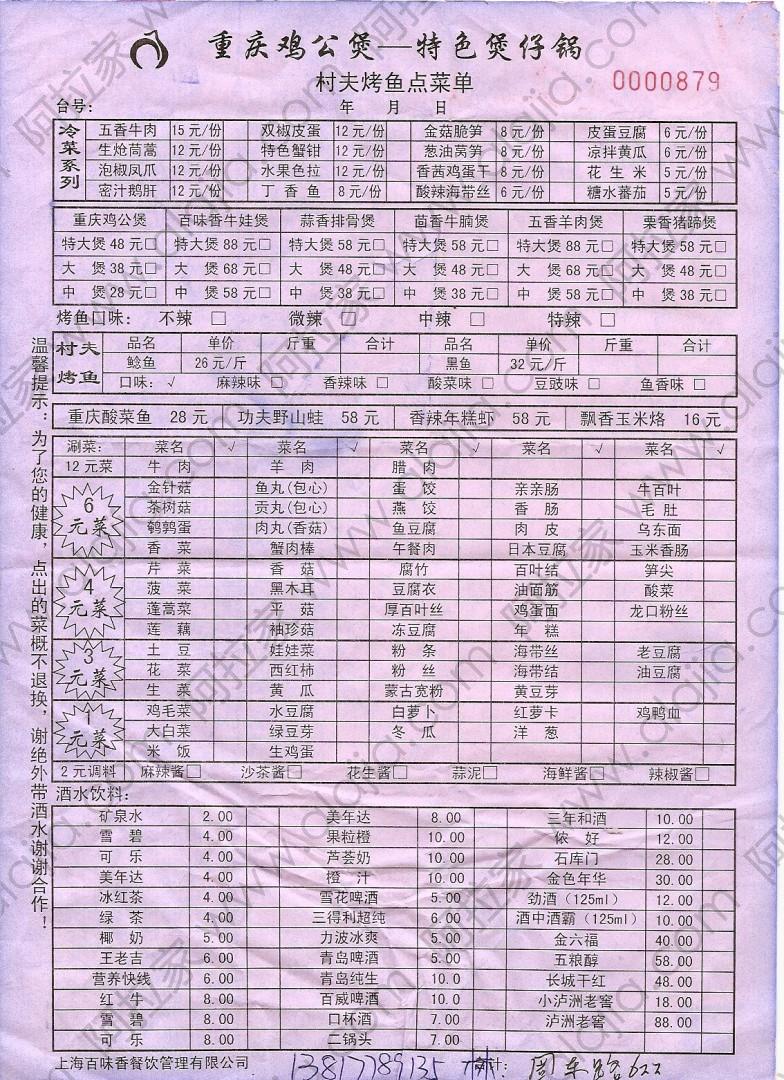 重庆鸡公煲—特色煲仔锅
村夫烤鱼点菜单
0000879
台号： 年 月 日
冷菜系列
五香牛肉 15元/份 双椒皮蛋 12元/份 金菇脆笋 8元/份 皮蛋豆腐 6元/份
生炝茼蒿 12元/份 特色蟹钳 12元/份 葱油莴笋 8元/份 凉拌黄瓜 6元/份
泡椒凤爪 12元/份 水果色拉 12元/份 香茜鸡蛋干 8元/份 花生米 5元/份
密汁鹅肝 12元/份 丁香鱼 8元/份 酸辣海带丝 6元/份 糖水蕃茄 5元/份
重庆鸡公煲 百味香牛娃煲 蒜香排骨煲 茴香牛腩煲 五香羊肉煲 栗香猪蹄煲
特大煲48元□ 特大煲88元□ 特大煲58元□ 特大煲58元□ 特大煲88元□ 特大煲58元□
大 煲38元□ 大 煲68元□ 大 煲48元□ 大 煲48元□ 大 煲68元□ 大 煲48元□
中 煲28元□ 中 煲58元□ 中 煲38元□ 中 煲38元□ 中 煲58元□ 中 煲38元□
烤鱼口味： 不辣 □ 微辣 □ 中辣 □ 特辣 □
村夫烤鱼
品名 单价 斤重 合计 品名 单价 斤重 合计
鲶鱼 26元/斤 黑鱼 32元/斤
口味：√ 麻辣味 □ 香辣味 □ 酸菜味 □ 豆豉味 □ 鱼香味 □
重庆酸菜鱼 28元 功夫野山蛙 58元 香辣年糕虾 58元 飘香玉米烙 16元
涮菜： 菜名 √ 菜名 √ 菜名 √ 菜名 √ 菜名 √
12元菜 牛肉 羊肉 腊肉
6元菜
金针菇 鱼丸(包心) 蛋饺 亲亲肠 牛百叶
茶树菇 贡丸(包心) 燕饺 香肠 毛肚
鹌鹑蛋 肉丸(香菇) 鱼豆腐 肉皮 乌东面
香菜 蟹肉棒 午餐肉 日本豆腐 玉米香肠
4元菜
芹菜 香菇 腐竹 百叶结 笋尖
菠菜 黑木耳 豆腐衣 油面筋 酸菜
蓬蒿菜 平菇 厚百叶丝 鸡蛋面 龙口粉丝
莲藕 袖珍菇 冻豆腐 年糕
3元菜
土豆 娃娃菜 粉条 海带丝 老豆腐
花菜 西红柿 粉丝 海带结 油豆腐
生菜 黄瓜 蒙古宽粉 黄豆芽
1元菜
鸡毛菜 水豆腐 白萝卜 红萝卡 鸡鸭血
大白菜 绿豆芽 冬瓜 洋葱
米饭 生鸡蛋
2元调料 麻辣酱□ 沙茶酱□ 花生酱□ 蒜泥□ 海鲜酱□ 辣椒酱□
酒水饮料：
矿泉水 2.00 美年达 8.00 三年和酒 10.00
雪碧 4.00 果粒橙 10.00 侬好 12.00
可乐 4.00 芦荟奶 10.00 石库门 28.00
美年达 4.00 橙汁 10.00 金色年华 30.00
冰红茶 4.00 雪花啤酒 5.00 劲酒（125ml） 12.00
绿茶 4.00 三得利超纯 6.00 酒中酒霸（125ml） 10.00
椰奶 5.00 力波冰爽 5.00 金六福 40.00
王老吉 6.00 青岛啤酒 5.00 五粮醇 58.00
营养快线 6.00 青岛纯生 10.0 长城干红 48.00
红牛 8.00 百威啤酒 10.0 小泸洲老窖 18.00
雪碧 8.00 口杯酒 7.00 泸洲老窖 88.00
可乐 8.00 二锅头 7.00
上海百味香餐饮管理有限公司 13817789135 林 计： 周东路622
温馨提示：为了您的健康，点出的菜概不退换，谢绝外带酒水谢谢合作！
阿拉家 www.alajia.com